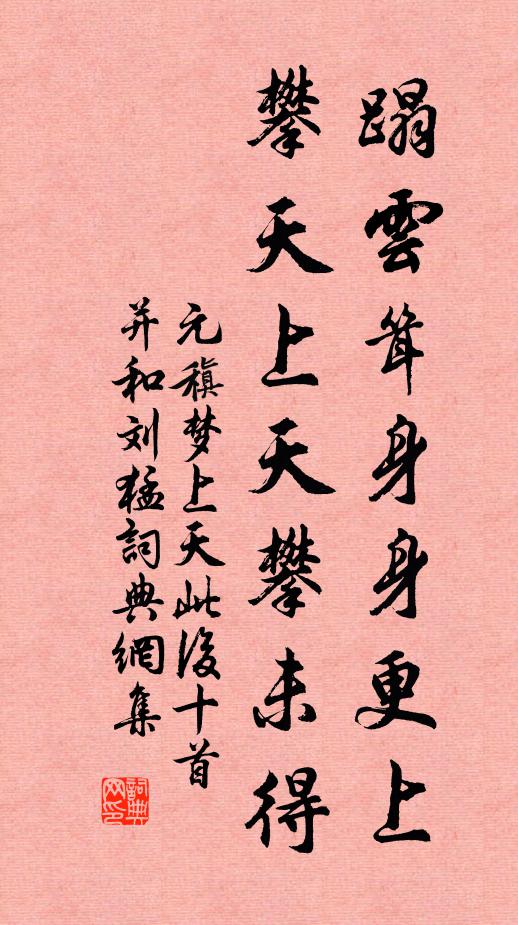 蹋雲耸身身更上
攀天上天攀未得
元稹梦上天此後十首
并和刘猛詞典網集
詞典
网印